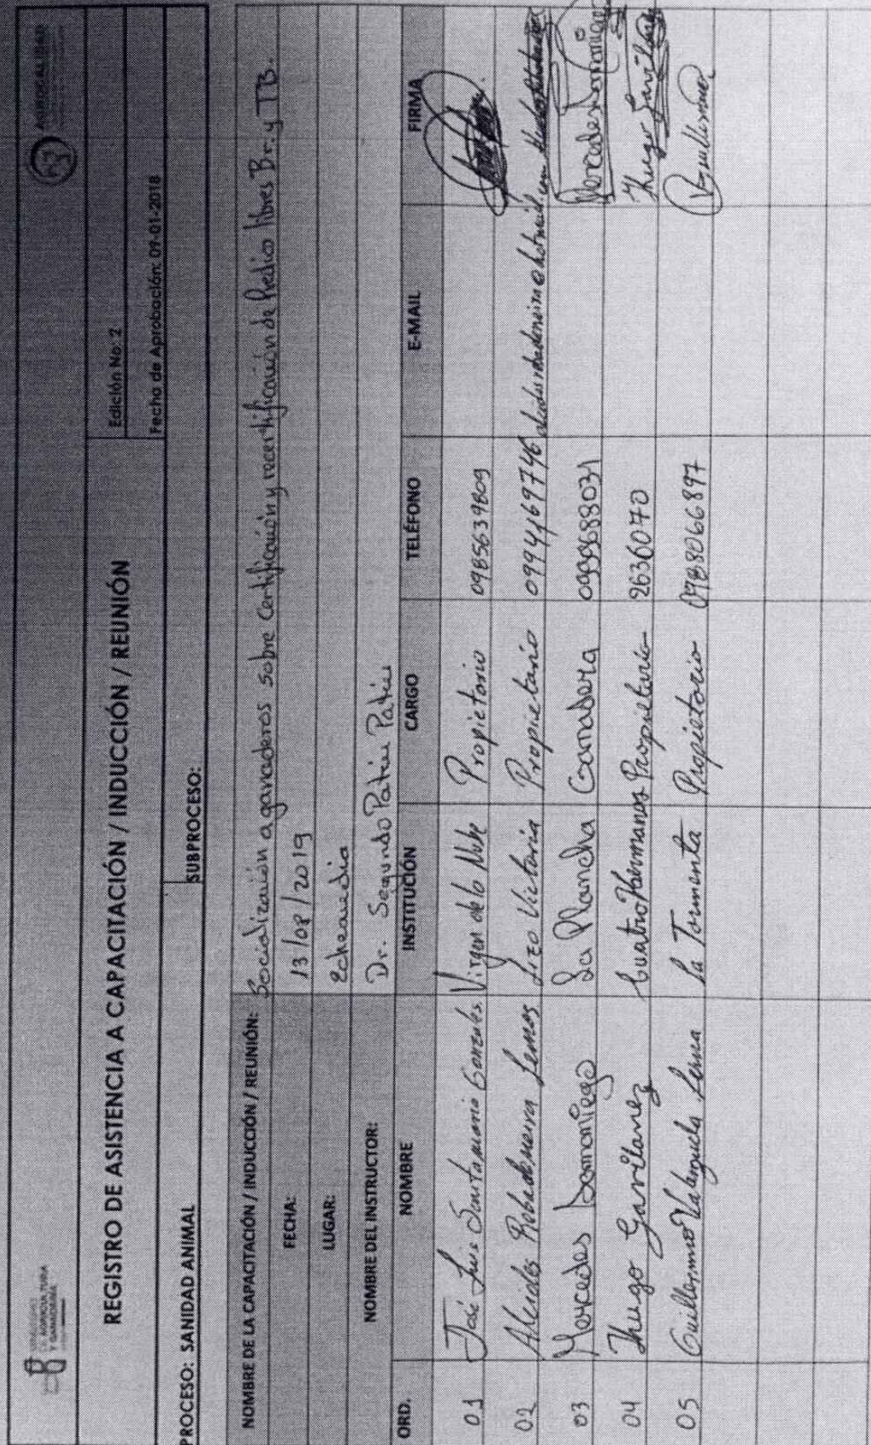 MINISTERIO DE AGRICULTURA Y GANADERÍA
AGROCALIDAD
REGISTRO DE ASISTENCIA A CAPACITACIÓN / INDUCCIÓN / REUNIÓN
Edición No: 2
Fecha de Aprobación: 09-01-2018
PROCESO: SANIDAD ANIMAL SUBPROCESO:
NOMBRE DE LA CAPACITACIÓN / INDUCCIÓN / REUNIÓN: Socialización a ganaderos sobre Certificación y recertificación de Predios libres Br. y TB.
FECHA: 13/08/2019
LUGAR: Echeandia
NOMBRE DEL INSTRUCTOR: Dr. Segundo Patin Patin
ORD. NOMBRE INSTITUCIÓN CARGO TELÉFONO E-MAIL FIRMA
01 José Luis Gonzales Virgen de la Nube Propietario 0985639809
02 Alcides Lemos Victoria Propietario 0994169746
03 Mercedes Samaniego La Plancha Ganadera 0999688031 Mercedes Samaniego
04 Hugo Gavilanez Cuatro Hermanos Propietario 2636070 Hugo Gavilanez
05 Guillermo Valenzuela Lema La Tormenta Propietario 0988066897